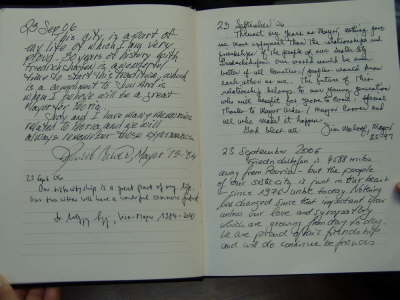 23 Sep 06
This city is a part of
my life of which I am very
proud. 30 years of history with
Friedrichshafen is a wonderful
time to start this tradition, which
is a compliment to
when I believe will be a great
Mayor for Peoria.
Judy and I have many memories
related to Peoria, and we will
always remember these
Mayor '73-'74
23 Sept 06
Our sistercityship is a great part of my life.
Our two cities will have a wonderful common future
Dr.
Vice-Mayor 1984-2010
23 September 06
Through my years as Mayor, nothing gave
me more enjoyment than the relationships and
friendships of the people of our sister city
Friedrichshafen. Our world would be much
better if all families/peoples would know
each other as we. The future of this
relationship belongs to our young generation
who will benefit for years to come. Special
thanks to Mayor
and
all who make it happen.
God bless all
Jim Maloof, Mayor
85-97
23 September 2006
Friedrichshafen is 4588 miles
away from Peoria - but the people
of our sister city is just in our heart
since 1976 until today. Nothing
has changed since that important year
unless our love and sympathy
which are growing from day to day.
We are proud of this friendship
and we do continue be friends